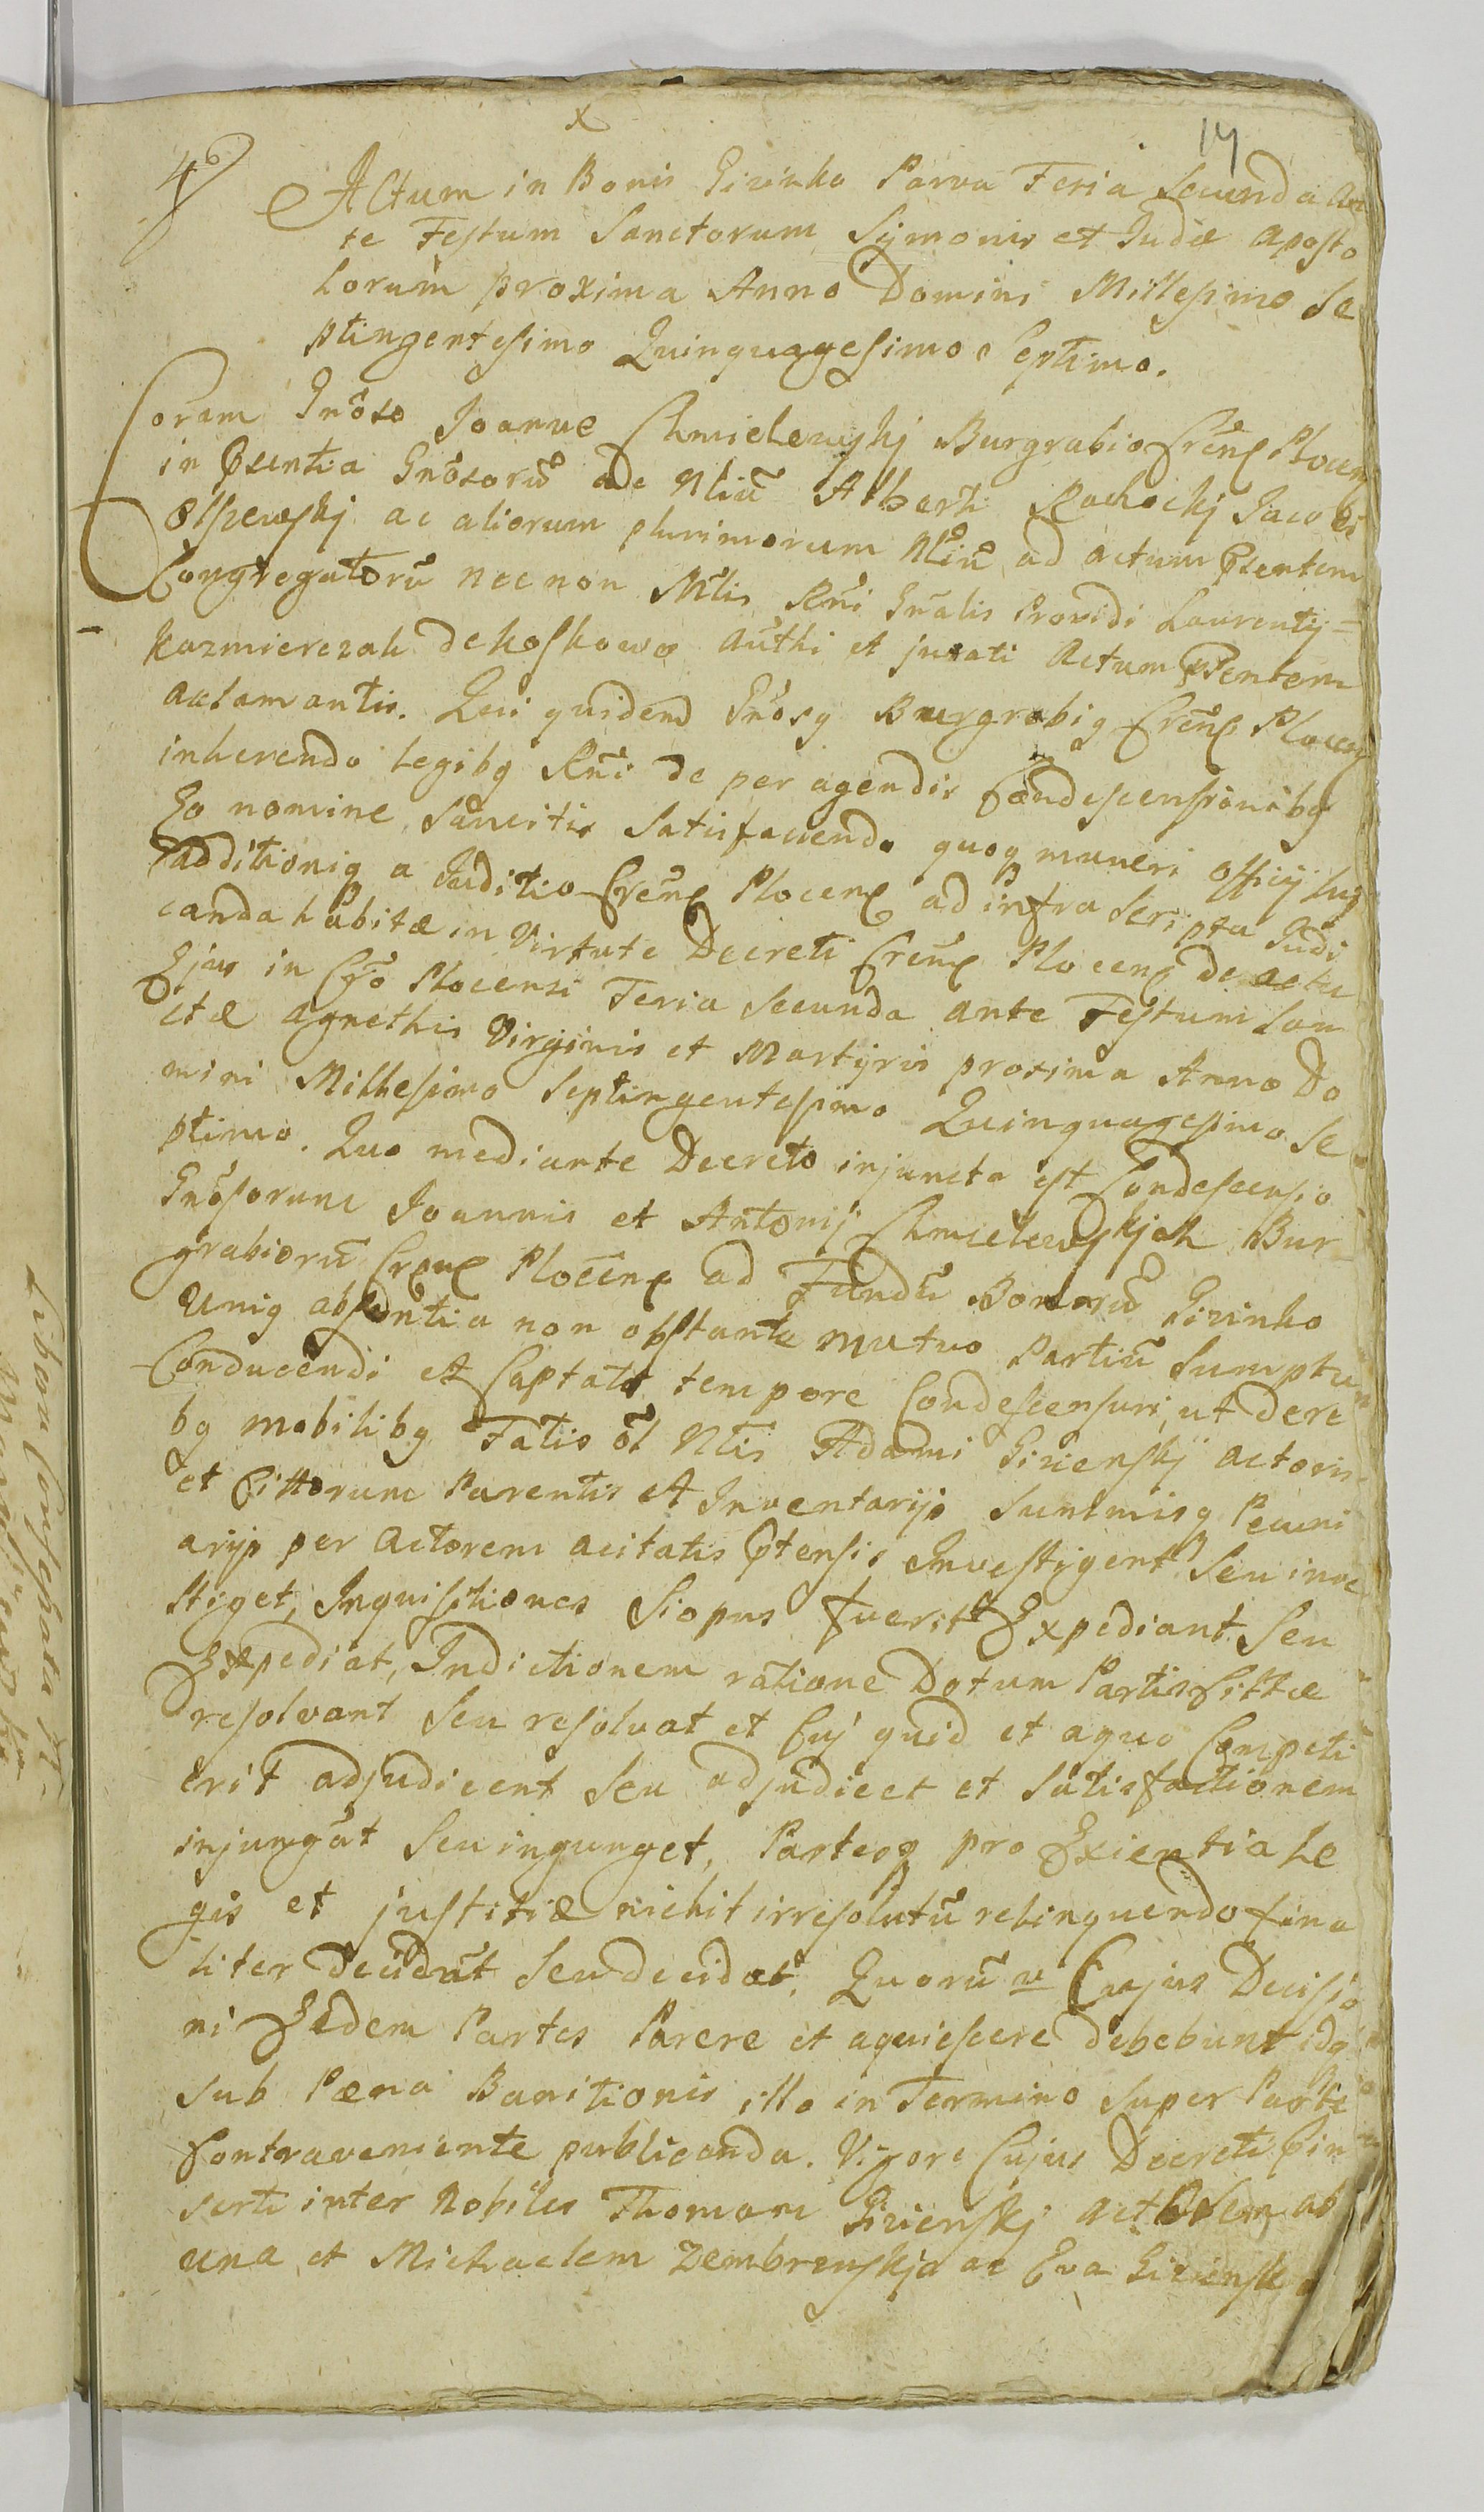 x
14
Actum in Bonis Gizinko Parva Feria Secunda An
te Festum Sanctorum Symonis et Judæ Aposto
lorum proxima Anno Domini Millesimo Se
ptingentesimo Quinquagesimo Septimo.
Coram Gnõso Joanne Chmielewskj Burgrabio Crẽnẽ Plocen
in Psentia Gnõsorũ ac Nliũ Alberti Rachockj Jacobi
Olszewskj ac aliorum plurimorum Nliũ ad actum Psentem
Congregatorũ nec non Mtlis Rñi Gnãlis Providi Laurentij
Kazmierczak de Koskowo Authi et jurati Actum Psentem
aclamantis. Qui quidem Gnõsq Burgrabiq Crẽnẽ Plocen
inherendo legibq Rñi de per agendis Condescensionibq
Eo nomine Sancitis Satisfaciendo quoq muneri officij suq
additioniq a Juditio Crẽnẽ Plocenẽ ad infra scripta Judi
canda habitæ in Virtute Decreti Crẽnẽ Plocenẽ de actu
Ejus in Cro Plocensi Feria Secunda ante Festum San
ctæ Agnethis Virginis et Martyris proxima Anno Do
mini Millesimo Septingentesimo Quinquagesimo Se
ptimo. Quo mediante Decreto injuncta est Condescensio
Gnõsorum Joannis et Antonij Chmielewskjch Bur
grabiorũ Crẽnẽ Plocenẽ ad Fundũ Bonorũ Gizinko
Uniq absentia non obstante mutuo Partiũ Sumptu
Conducendi et Captato tempore Condescensuri, ut de re
bq mobilibq Fatis õl Nlis Adami Gizienskj actoris
et Cittorum Parentis et Inventarijs Summisq Pecuni
arijs per Actorem acitatis Ptensis Investigent Seu inve
stiget, Inquisitiones Si opus fuerit Expediant Seu
Expediat, Indictionem ratione Dotum Partis Cittæ
resolvant Seu resolvat et Cuj quid et aquo Competi
erit adjudicent Seu adjudicet et Satisfactionem
injungãt Seu ingunget, Partesq pro Exientia Le
gis et justitiæ nichil irresolutũ relinquendo fina
liter decidãt Seu decidat, Quorũ v Cujus Decisio
ni Eædem Partes Parere et aquiescere debebunt idq
sub Pæna Banitionis illo in Termino Super Parte
Contraveniente publicanda. Vigore Cujus Decreti Pin
serti inter Nobiles Thomam Gizienskj Actorem ab
una et Michaelem Zembrzuskja ac Eva Gizienska